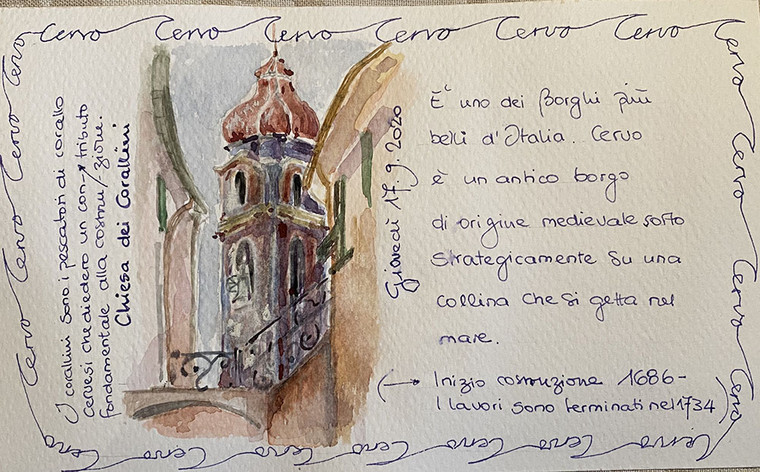 Cervo Cervo Cervo Cervo Cervo Cervo
Cervo Cervo Cervo Cervo
Cervo Cervo Cervo Cervo
Cervo Cervo Cervo Cervo Cervo Cervo Cervo
I corallini sono i pescatori di corallo
cervesi che diedero un con- tributo
fondamentale alla costru/-zione.
Chiesa dei Corallini
Giovedì 17.9.2020
È uno dei Borghi più
belli d'Italia. Cervo
è un antico borgo
di origine medievale sorto
strategicamente su una
collina che si getta nel
mare.
Inizio costruzione 1686-
I lavori sono terminati nel 1734